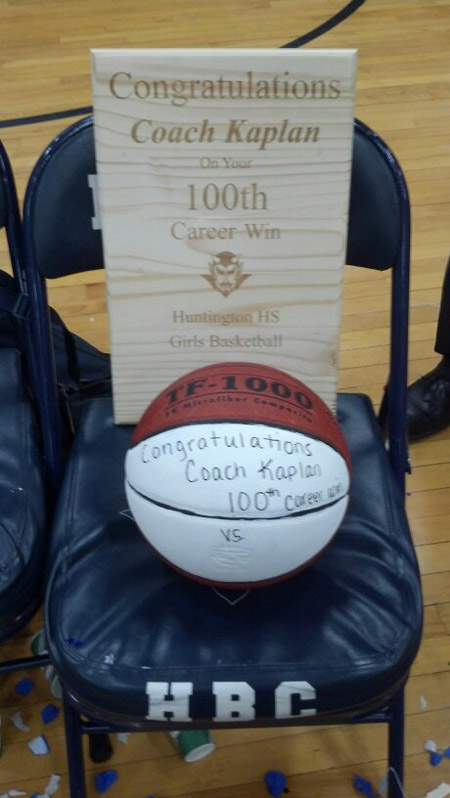 Congratulations
Coach Kaplan
On Your
100th
Career Win
Huntington HS
Girls Basketball
TF-1000
ZK Microfiber Composite
Congratulations
Coach Kaplan
100th career win
vs.
HBC